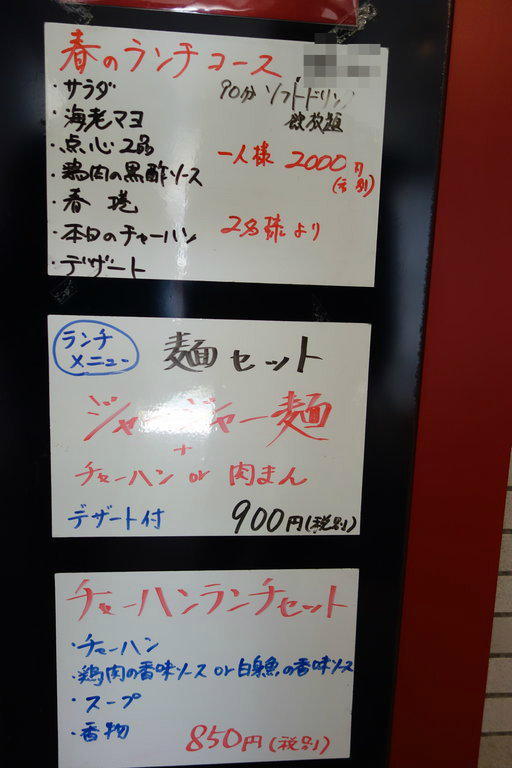 春のランチコース
・サラダ
90分 ソフトドリンク
飲放題
・海老マヨ
・点心2品
一人様 2000円
(税別)
・鶏肉の黒酢ソース
・香港
2名様より
・本日のチャーハン
・デザート
ランチ
メニュー
麺セット
ジャージャー麺
+
チャーハン or 肉まん
デザート付
900円(税別)
チャーハンランチセット
・チャーハン
・鶏肉の香味ソース or 白身魚の香味ソース
・スープ
・香物
850円(税別)